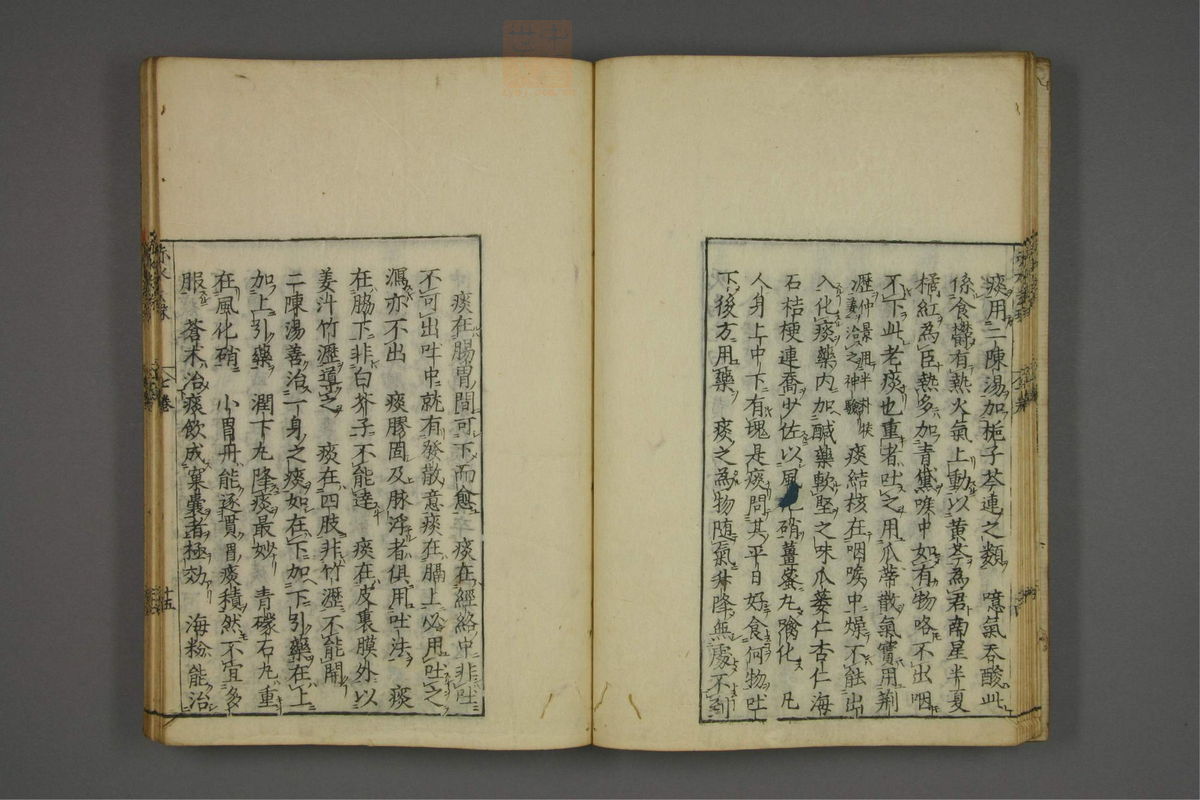 痰用二陳湯加梔子芩連之類　噫氣吞酸此
係食欝有熱火氣上動以黄芩為君南星半夏
橘紅為臣熱多加青黛喉中如有物咯不出咽
不下此老痰也重者吐之用瓜蒂散氣實用荆
瀝仲景用半斜狹
姜治之神驗　痰結核在咽喉中燥不能出
入化痰藥内加鹹藥軟堅之味瓜蔞仁杏仁海
石桔梗連喬少佐以風化硝薑蜜丸噙化　凡
人身上中下有塊是痰問其平日好食何物吐
下後方用藥　痰之為物随氣升降無處不到
痰在腸胃間可下而愈　痰在經絡中非吐
不可出吐中就有發散意痰在膈上必用吐之
瀉亦不出　痰膠固及脉浮者俱用吐法　痰
在脇下非白芥子不能達　痰在皮裏膜外以
姜汁竹瀝導之　痰在四肢非竹瀝不能開
二陳湯善治一身之痰如在下加下引藥在上
加上引藥　潤下丸降痰最妙　青礞石丸重
在風化硝　小胃丹能逐胃痰積然不宜多
服　蒼术治痰飲成窠囊者極効　海粉能治
七卷
十五